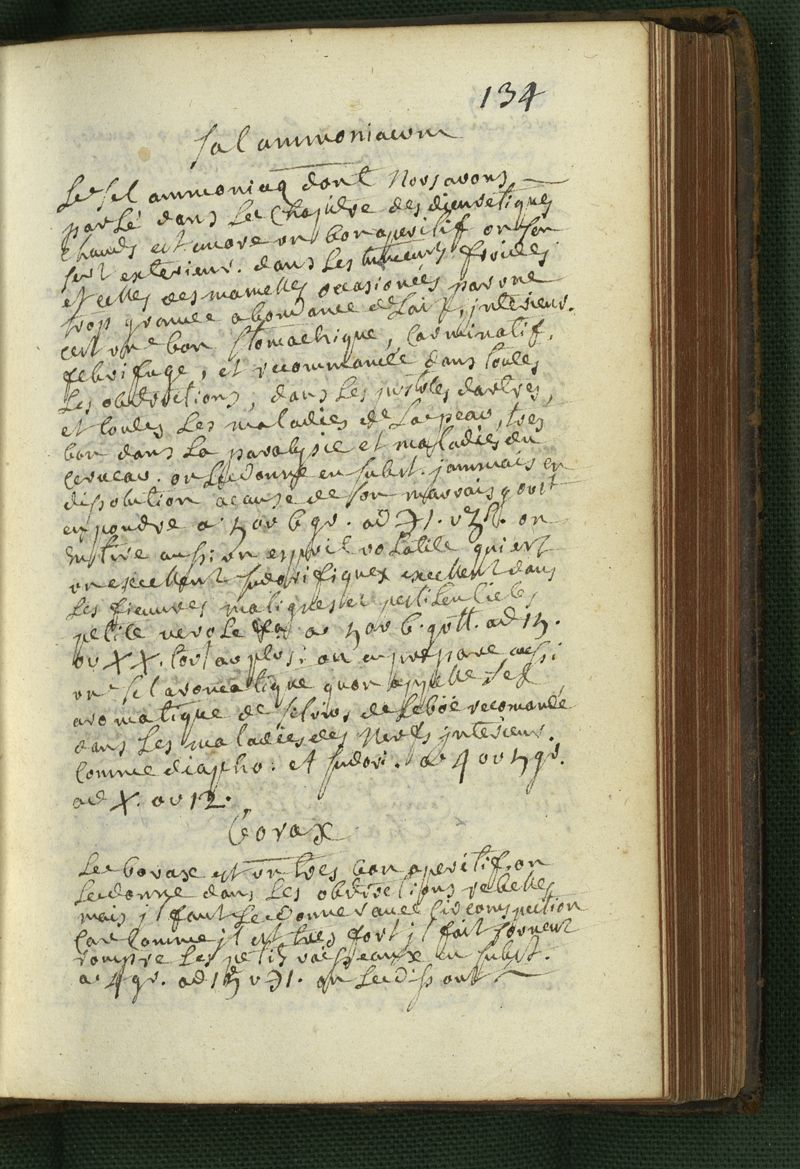 134
Sal ammoniacum
Le sel ammoniaq dont Nous avons
parlé dans Le Chapitre des diuretiques
chauds est encore un bon aperitif on sen
sert exterieur. dans Les tumeurs froides
et celles des mamelles occasionées par une
trop grande abondance de Lait, jnterieur.
cest une bon stomachique, Carminatif,
febrifuge, et recommandé dans toutes
Les obstructions, dans Les pustules dartres,
et toutes Les maladies de La peau, tres
bon dans La paralysie et maladies du
Cerveau. on Le donne en subst. jammais en
dissolution a cause de son mauvais goust
en poudre a 5 ou 6 gr. ad ℈1. on
en tire aussi un esprit volatile qui est
un excellent sudorifique excellent dans
Les fieuvres malignes et pestilentieles
petite verole a 5 ou 6. gutt. ad 15.
ou XX. tout au plus: on en prepare aussi
un Sel aromatique quon appelle Sel
aromatique de Selvius de Leboë recomandé
dans Les maladies des Nerfs jnterieur.
Comme diapho: et sudori. a 4 ou 5 gr.
ad X. ou 12.
Borax
Le borax est un tres bon aperitif. on
Le donne dans Les obstructions rebelles
mais jl faut Le donner avec Circomspection
Car Comme jl est tres fort jl fait souvent
rompre Les petits vaisseaux en subst.
a 4 gr. ad 15 v ℈1. on Le dissout